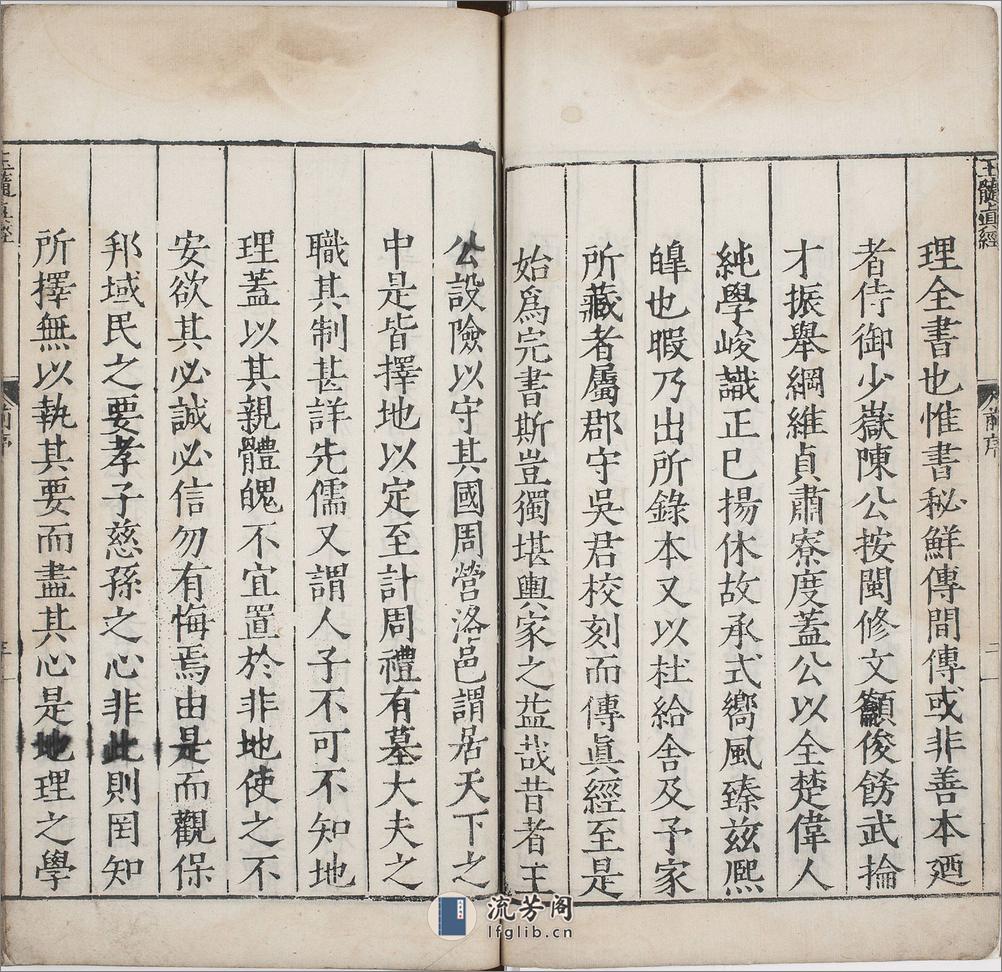 玉髓眞經
前序
二
理全書也惟書秘鮮傳間傳或非善本廼
者侍御少嶽陳公按閩修文籲俊餝武掄
才振舉綱維貞肅寮度蓋公以全楚偉人
純學峻識正巳揚休故承式嚮風臻茲熈
皥也暇乃出所錄本又以杜給舍及予家
所藏者屬郡守吳君校刻而傳眞經至是
始爲完書斯豈獨堪輿家之益哉昔者王
公設險以守其國周營洛邑謂居天下之
中是皆擇地以定至計周禮有墓大夫之
職其制甚詳先儒又謂人子不可不知地
理蓋以其親體魄不宜置於非地使之不
安欲其必誠必信勿有悔焉由是而觀保
邦域民之要孝子慈孫之心非此則罔知
所擇無以執其要而盡其心是地理之學
玉髓眞經
前序
流芳阁
lfglib.cn